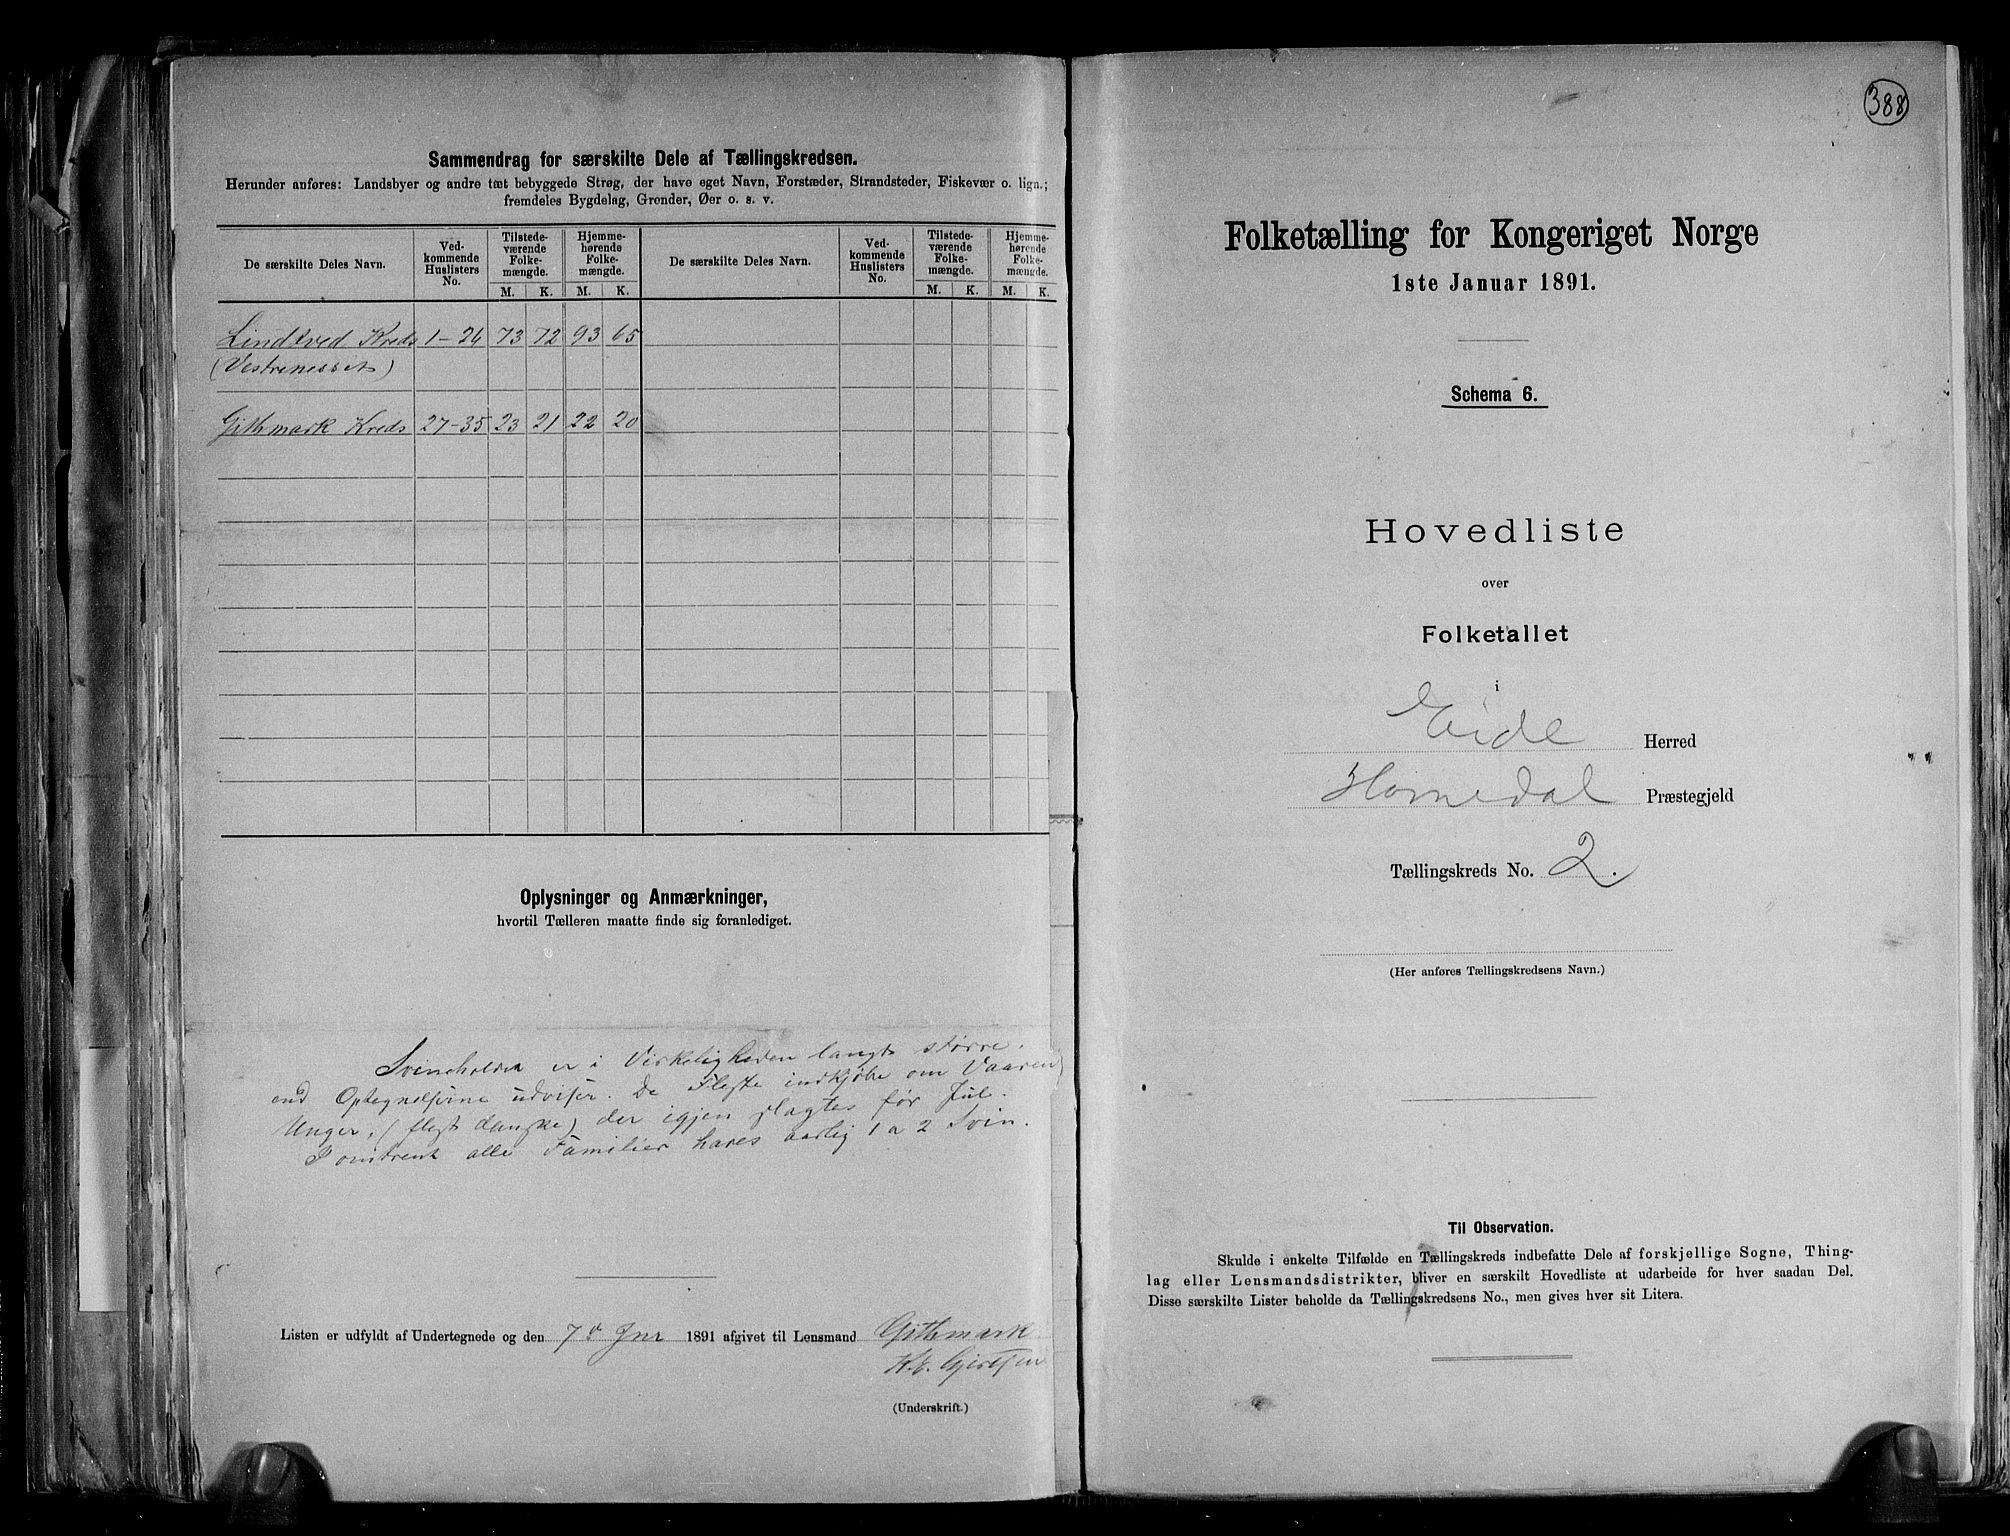 Sammendrag for særskilte Dele af Tællingskredsen.
Herunder anføres: Landsbyer og andre tæt bebyggede Strøg, der have eget Navn, Forstæder, Strandsteder, Fiskevær o. lign.;
fremdeles Bygdelag, Grender, Øer o. s. v.
De særskilte Deles Navn. Vedkommende Huslisters No. Tilstedeværende Folkemængde. M. K. Hjemmehørende Folkemængde. M. K. De særskilte Deles Navn. Vedkommende Huslisters No. Tilstedeværende Folkemængde. M. K. Hjemmehørende Folkemængde. M. K.
Lindtved Kreds 1-26 73 72 93 65
(Vestrenesset)
Githmark Kreds 27-35 23 21 22 20
Oplysninger og Anmærkninger,
hvortil Tælleren maatte finde sig foranlediget.
Svineholdet er i Virkeligheden langt større
end Optegnelserne udviser. De Fleste indkjøbe om Vaaren
Unger, (flest danske) der igjen slagtes før Jul.
I omtrent alle Familier haves aarlig 1 a 2 Svin.
Listen er udfyldt af Undertegnede og den 7d Jnr 1891 afgivet til Lensmand Githmark
K. E. Gjertsen
(Underskrift.)
388
Folketælling for Kongeriget Norge
1ste Januar 1891.
Schema 6.
Hovedliste
over
Folketallet
i
Eide Herred
Homedal Præstegjeld
Tællingskreds No. 2.
(Her anføres Tællingskredsens Navn.)
Til Observation.
Skulde i enkelte Tilfælde en Tællingskreds indbefatte Dele af forskjellige Sogne, Thing-
lag eller Lensmandsdistrikter, bliver en særskilt Hovedliste at udarbeide for hver saadan Del.
Disse særskilte Lister beholde da Tællingskredsens No., men gives hver sit Litera.